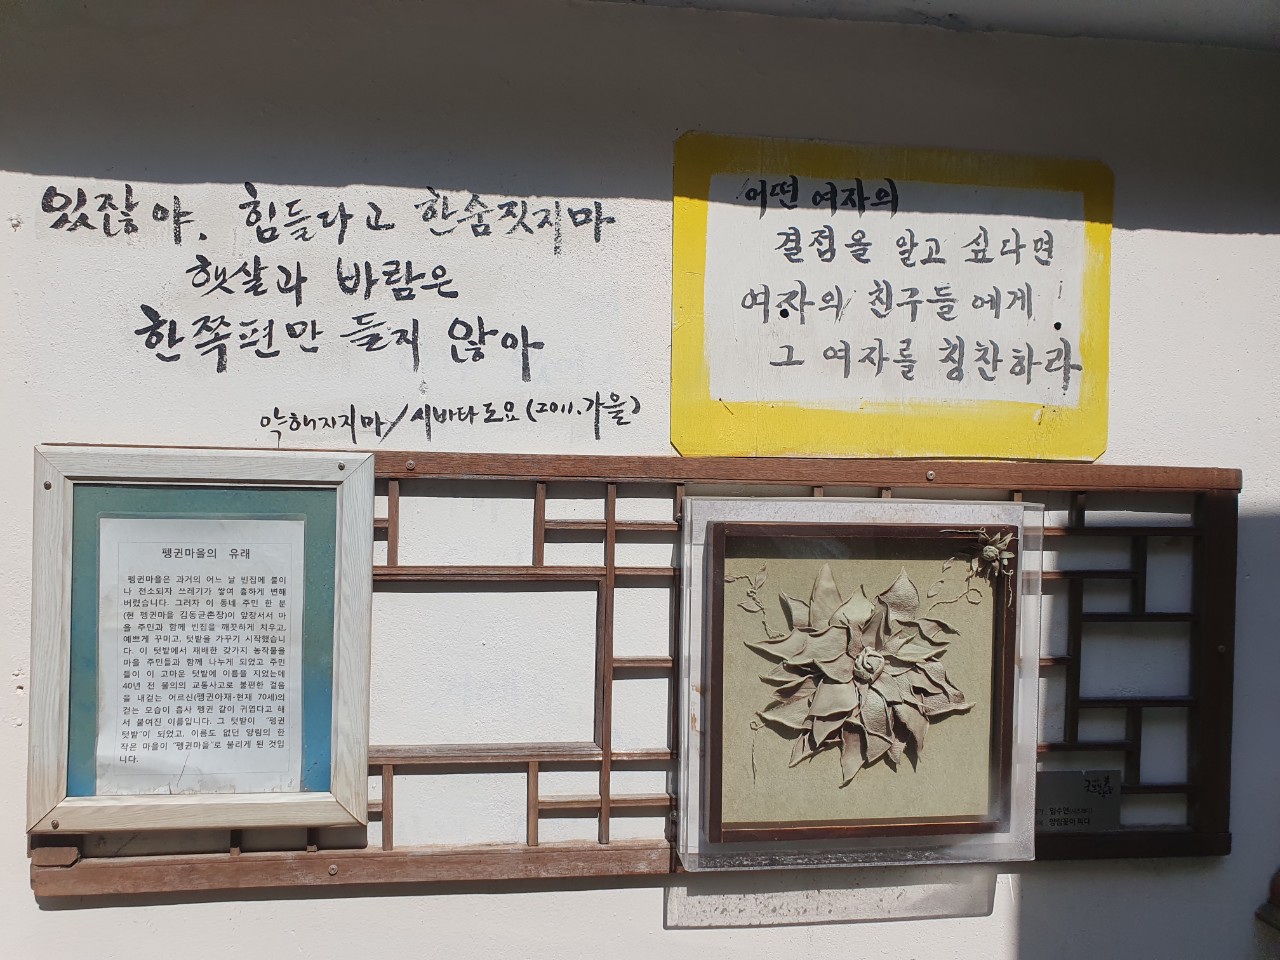 있잖아. 힘들다고 한숨짓지마
햇살과 바람은
한쪽편만 들지 않아
약해지지마/시바타도요(2011.가을)
어떤 여자의
결점을 알고 싶다면
여자의 친구들에게
그 여자를 칭찬하라
펭귄마을의 유래
펭귄마을은 과거의 어느 날 빈집에 불이
나 전소되자 쓰레기가 쌓여 흉하게 변해
버렸습니다. 그러자 이 동네 주민 한 분
(현 펭귄마을 김동균촌장)이 앞장서서 마
을 주민과 함께 빈집을 깨끗하게 치우고,
예쁘게 꾸미고, 텃밭을 가꾸기 시작했습니
다. 이 텃밭에서 재배한 갖가지 농작물을
마을 주민들과 함께 나누게 되었고 주민
들이 이 고마운 텃밭에 이름을 지었는데
40년 전 불의의 교통사고로 불편한 걸음
을 내걷는 어르신(펭귄아재-현재 70세)의
걷는 모습이 흡사 펭귄 같이 귀엽다고 해
서 붙여진 이름입니다. 그 텃밭이 "펭귄
텃밭"이 되었고, 이름도 없던 양림의 한
작은 마을이 "펭귄마을"로 불리게 된 것입
니다.
임수연
양림꽃이 피다